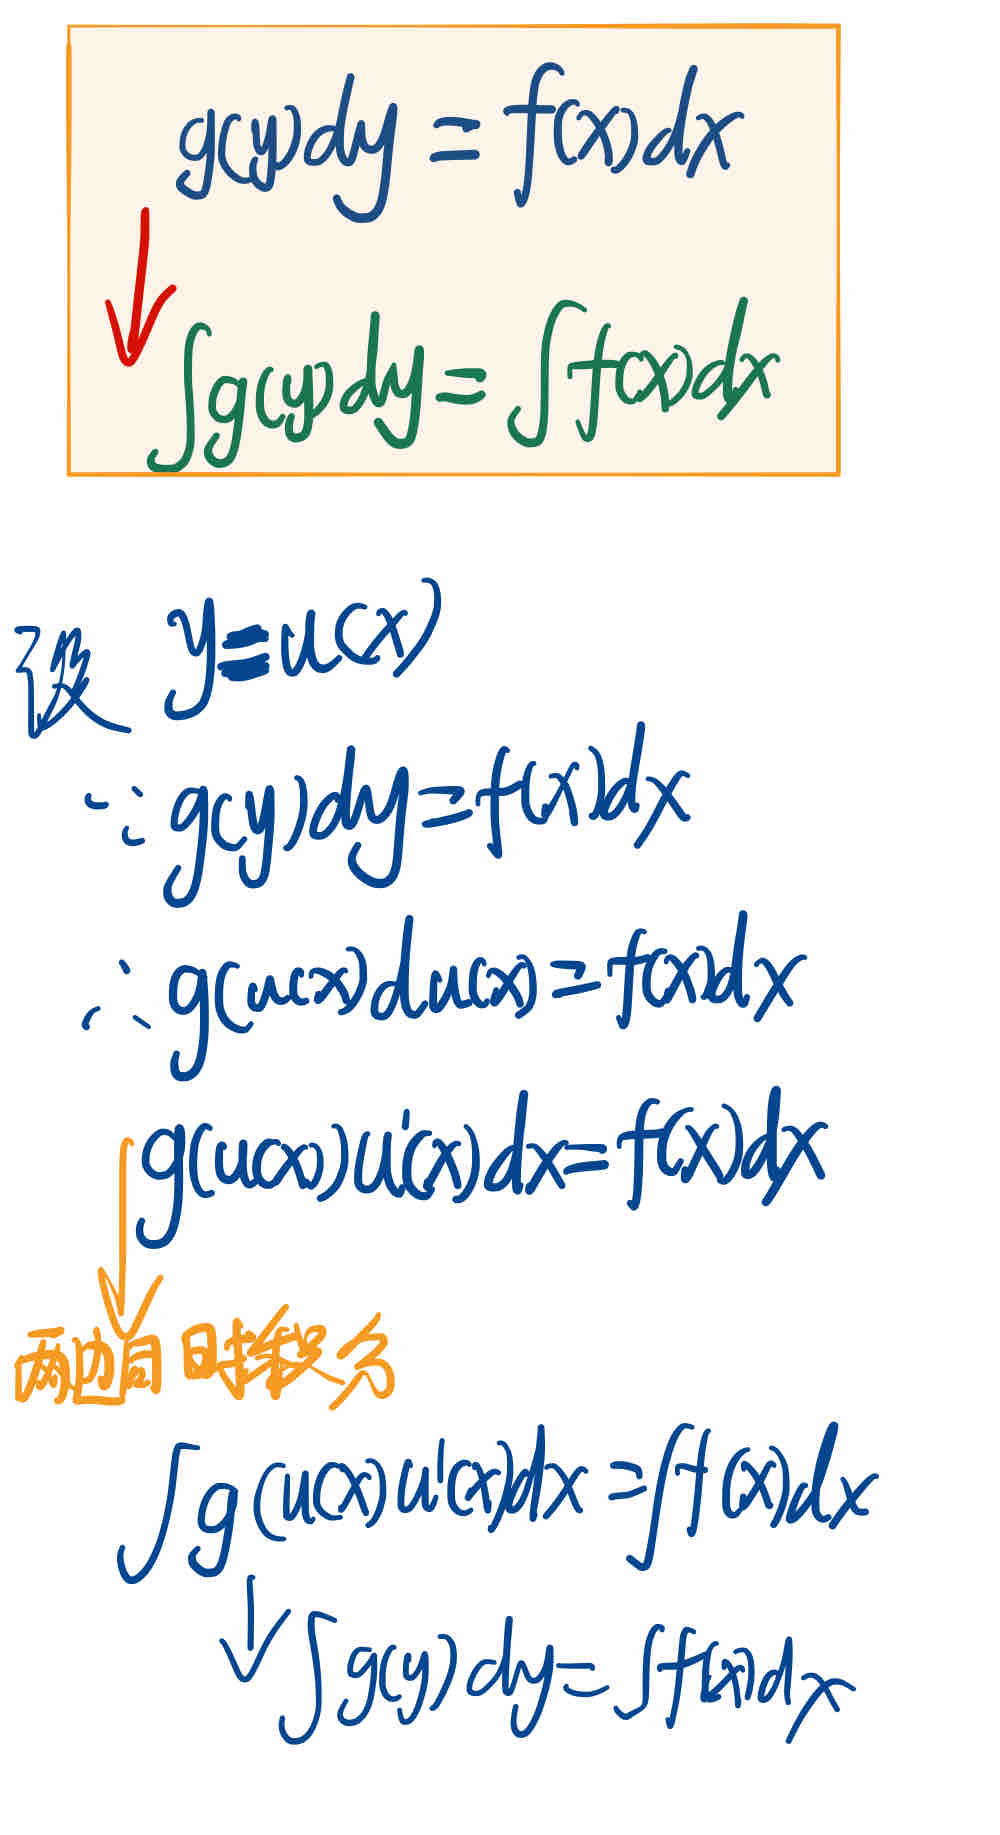 g(y)dy = f(x)dx
∫g(y)dy = ∫f(x)dx
设 y=u(x)
∵ g(y)dy=f(x)dx
∴ g(u(x))du(x)=f(x)dx
g(u(x))u'(x)dx=f(x)dx
两边同时积分
∫g(u(x)u'(x)dx =∫f(x)dx
∫g(y)dy=∫f(x)dx